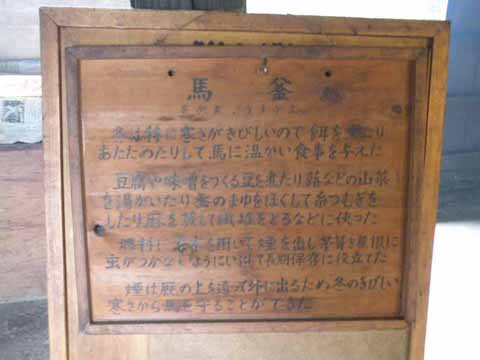 馬釜
冬は特に寒さがきびしいので餌を煮たり
あたためたりして馬に温かい食事を与えた
豆腐や味噌をつくる豆を煮たり蕗などの山菜
を湯がいたり蚕のまゆをほぐして糸つむぎを
したり麻を蒸して繊維をとるなどに使った
燃料に 用いて煙を出し茅葺き屋根に
虫がつかないように して長期保存に役立てた
煙は厩の上を通って外に出るため冬のきびしい
寒さから馬を守ることができた